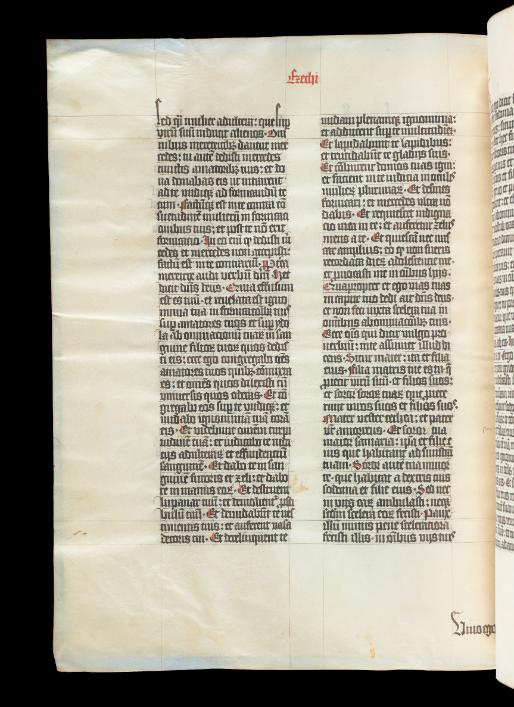 Ezechi
sed quasi mulier adultera: que sup
virū suū inducit alienos. Oni
nibus meretricibus dantur mer
cedes: tu autē dedisti mercedes
cunctis amatoribus tuis: et do
na donabas eis ut intrarent
ad te undiqz ad fornicandū te
cum. Factūqz est in te contra cō
suetudinē mulierū in fornicati
onibus tuis: et post te nō erit
fornicatio. In eo em̄ qz dedisti m̄
cedes et mercedes non accepisti:
factū est in te contrariū. Pp̄ea
meretrix audi verbū dn̄i. Hec
dicit dn̄s deus. Quia effusum
est es tuū. et revelata est igno
minia tua in fornicatōib9 tuis
sup amatores tuos et sup ydo
la abominationū tuarꝝ in san
guine filiorꝝ tuorꝝ quos dedisti
eis: ecce ego congregabo oēs
amatores tuos quibꝫ cōmixta
es: et omēs quos dilexisti cū
universis quos oderas. Et cō
gregabo eos sup te undiqz: et
nudabo ignominiā tuā corā
eis. Et
iudicabo te iudi
cijs adulterarꝝ et effundentiū
sanguinē. Et dabo te in san
guinē furoris et zeli: et dabo
te in manus eorꝝ. Et destruent
lupanar tuū: et demolient̄ p̄sti
bulū tuū. Et denudabūt te ve
stimentis tuis: et auferent vasa
decoris tui. Et derelinquent te
nudam plenamqz ignominia:
et adducent sup te multitudinē.
Et lapidabunt te lapidibus:
et trucidabūt te gladijs suis.
Et cōburent domos tuas igni:
et facient in te iudicia in oculis
mulierꝝ plurimarꝝ. Et desines
fornicari: et mercedes ultra nō
dabis. Et requiescet indigna
cio mea in te: et auferetur zelus
meus a te. Et quiescā nec iras
car amplius: eo qz non fueris
recordata dierꝝ adolescentie tue
et provocasti me in oībus hijs.
Quapropter et ego vias tuas
in capite tuo dedi ait dn̄s deus.
et non feci iuxta scelera tua in
omībus abominacōibꝫ tuis.
Ecce om̄is qui dicit vulgo pro
verbiū: in te assumet illud di
cens. Sicut mater: ita et filia
eius. Filia matris tue es tu: q̄
proiecit virū suū: et filios suos:
et soror sororū tuarꝝ que proie
cerunt viros suos et filios suos.
Mater vestra cethea: et pater
vr̄ amorreus. Et soror tua
maior samaria: ip̄a et filie e
ius que habitant ad sinistrā
tuam. Soror autē tua minor
te. que habitat a dextris tuis
sodoma et filie eius. Sed nec
in vijs earꝝ ambulasti: neqz
scdm̄ scelera earꝝ fecisti. Pauxi
illū minus pene sceleratiora
fecisti illis. in oībus vijs tuis
Vivo ego